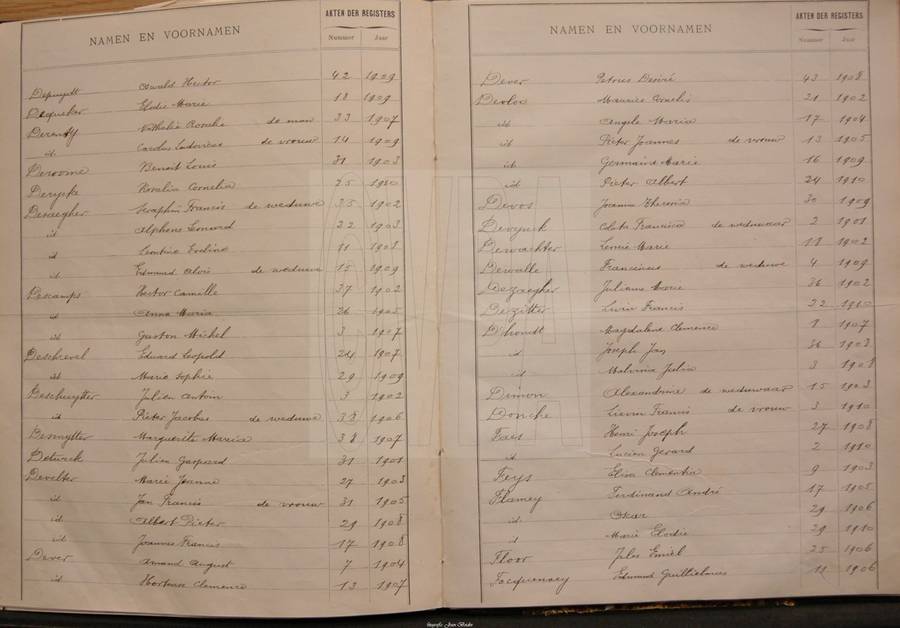 NAMEN EN VOORNAMEN
AKTEN DER REGISTERS
Nummer Jaar
Depuydt Oswald Hector 42 1909
Dequeker Elodie Marie 18 1909
Nathalie Rosalie de man 33 1907
id Carolus Ludovicus de vrouw 14 1909
Deroome Benoit Louis 31 1903
Derycke Rosalia Cornelia 25 1910
Desaegher Seraphin Francis de weduwe 35 1902
id Alphons Leonard 22 1903
id Leontine Eveline 11 1908
id Edmund Alois de weduwe 15 1909
Descamps Hector Camille 37 1902
id Anna Maria 26 1905
id Gaston Michel 3 1907
Deschrevel Eduard Leopold 24 1907
id Marie Sophie 29 1909
Deschuytter Julien Antoin 3 1902
id Pieter Jacobus de weduwe 38 1906
Desmytter Marguerite Marica 38 1907
Deturck Julien Gaspard 31 1901
Develter Marie Jeanne 27 1903
id Jan Francis de vrouw 31 1905
id Albert Pieter 29 1908
id Joannes Francis 17 1908
Dever Amand August 7 1904
id Hortense Clemence 13 1907
NAMEN EN VOORNAMEN
AKTEN DER REGISTERS
Nummer Jaar
Dever Petrus Desiré 43 1908
Devloo Maurice Cornelis 21 1902
id Angele Maria 17 1904
id Pieter Joannes de vrouw 13 1905
id Germaine Marie 16 1909
id Pieter Albert 24 1910
Devos Joanna Theresia 30 1909
Devynck Coleta Francisca de weduwaar 2 1901
Dewachter Leonie Marie 11 1902
Dewalle Franciscus de weduwe 4 1909
Dezaegher Juliana Marie 36 1902
Dezitter Livin Francis 22 1910
Dhondt Magdalena Clemence 1 1907
id Joseph Jan 36 1903
id Malvina Julia 3 1908
Dimon Alexandrine de weduwaar 15 1903
Donche Lievin Francis de vrouw 3 1910
Fais Henri Joseph 27 1908
id Lucien Gerard 2 1910
Feys Elisa Clementia 9 1903
Flamey Ferdinand André 17 1905
id Oskar 29 1906
id Marie Elodie 29 1910
Floor Jules Emiel 25 1906
Focquenoey Edmund Guillielmus 11 1906